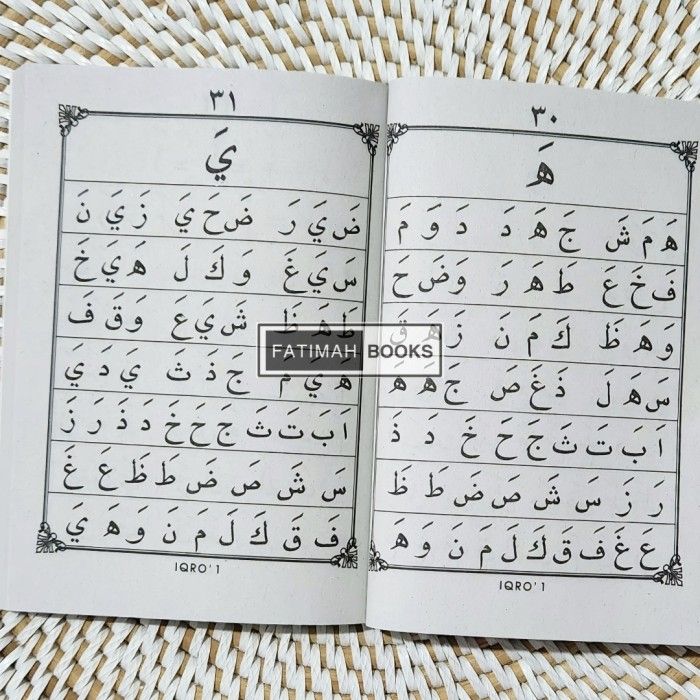 ٣٠
هَ
هَ مَ شَ جَ هَ دَ دَ وَ مَ
فَ خَ عَ طَ هَ رَ وَ ضَ حَ
وَ هَ ظَ كَ مَ نَ زَ هَ قَ
سَ هَ لَ ذَ غَ صَ جَ هَ هَ
اَ بَ تَ ثَ جَ حَ خَ دَ ذَ
رَ زَ سَ شَ صَ ضَ طَ ظَ
عَ غَ فَ قَ كَ لَ مَ نَ وَ هَ
IQRO' 1
٣١
يَ
ضَ يَ رَ ضَ حَ يَ زَ يَ نَ
سَ يَ غَ وَ كَ لَ هَ يَ خَ
طَ هَ ظَ شَ يَ عَ وَ قَ فَ
هَ يَ مَ جَ ذَ ثَ يَ دَ يَ
اَ بَ تَ ثَ جَ حَ خَ دَ ذَ رَ زَ
سَ شَ صَ ضَ طَ ظَ عَ غَ
فَ قَ كَ لَ مَ نَ وَ هَ يَ
IQRO' 1
FATIMAH BOOKS